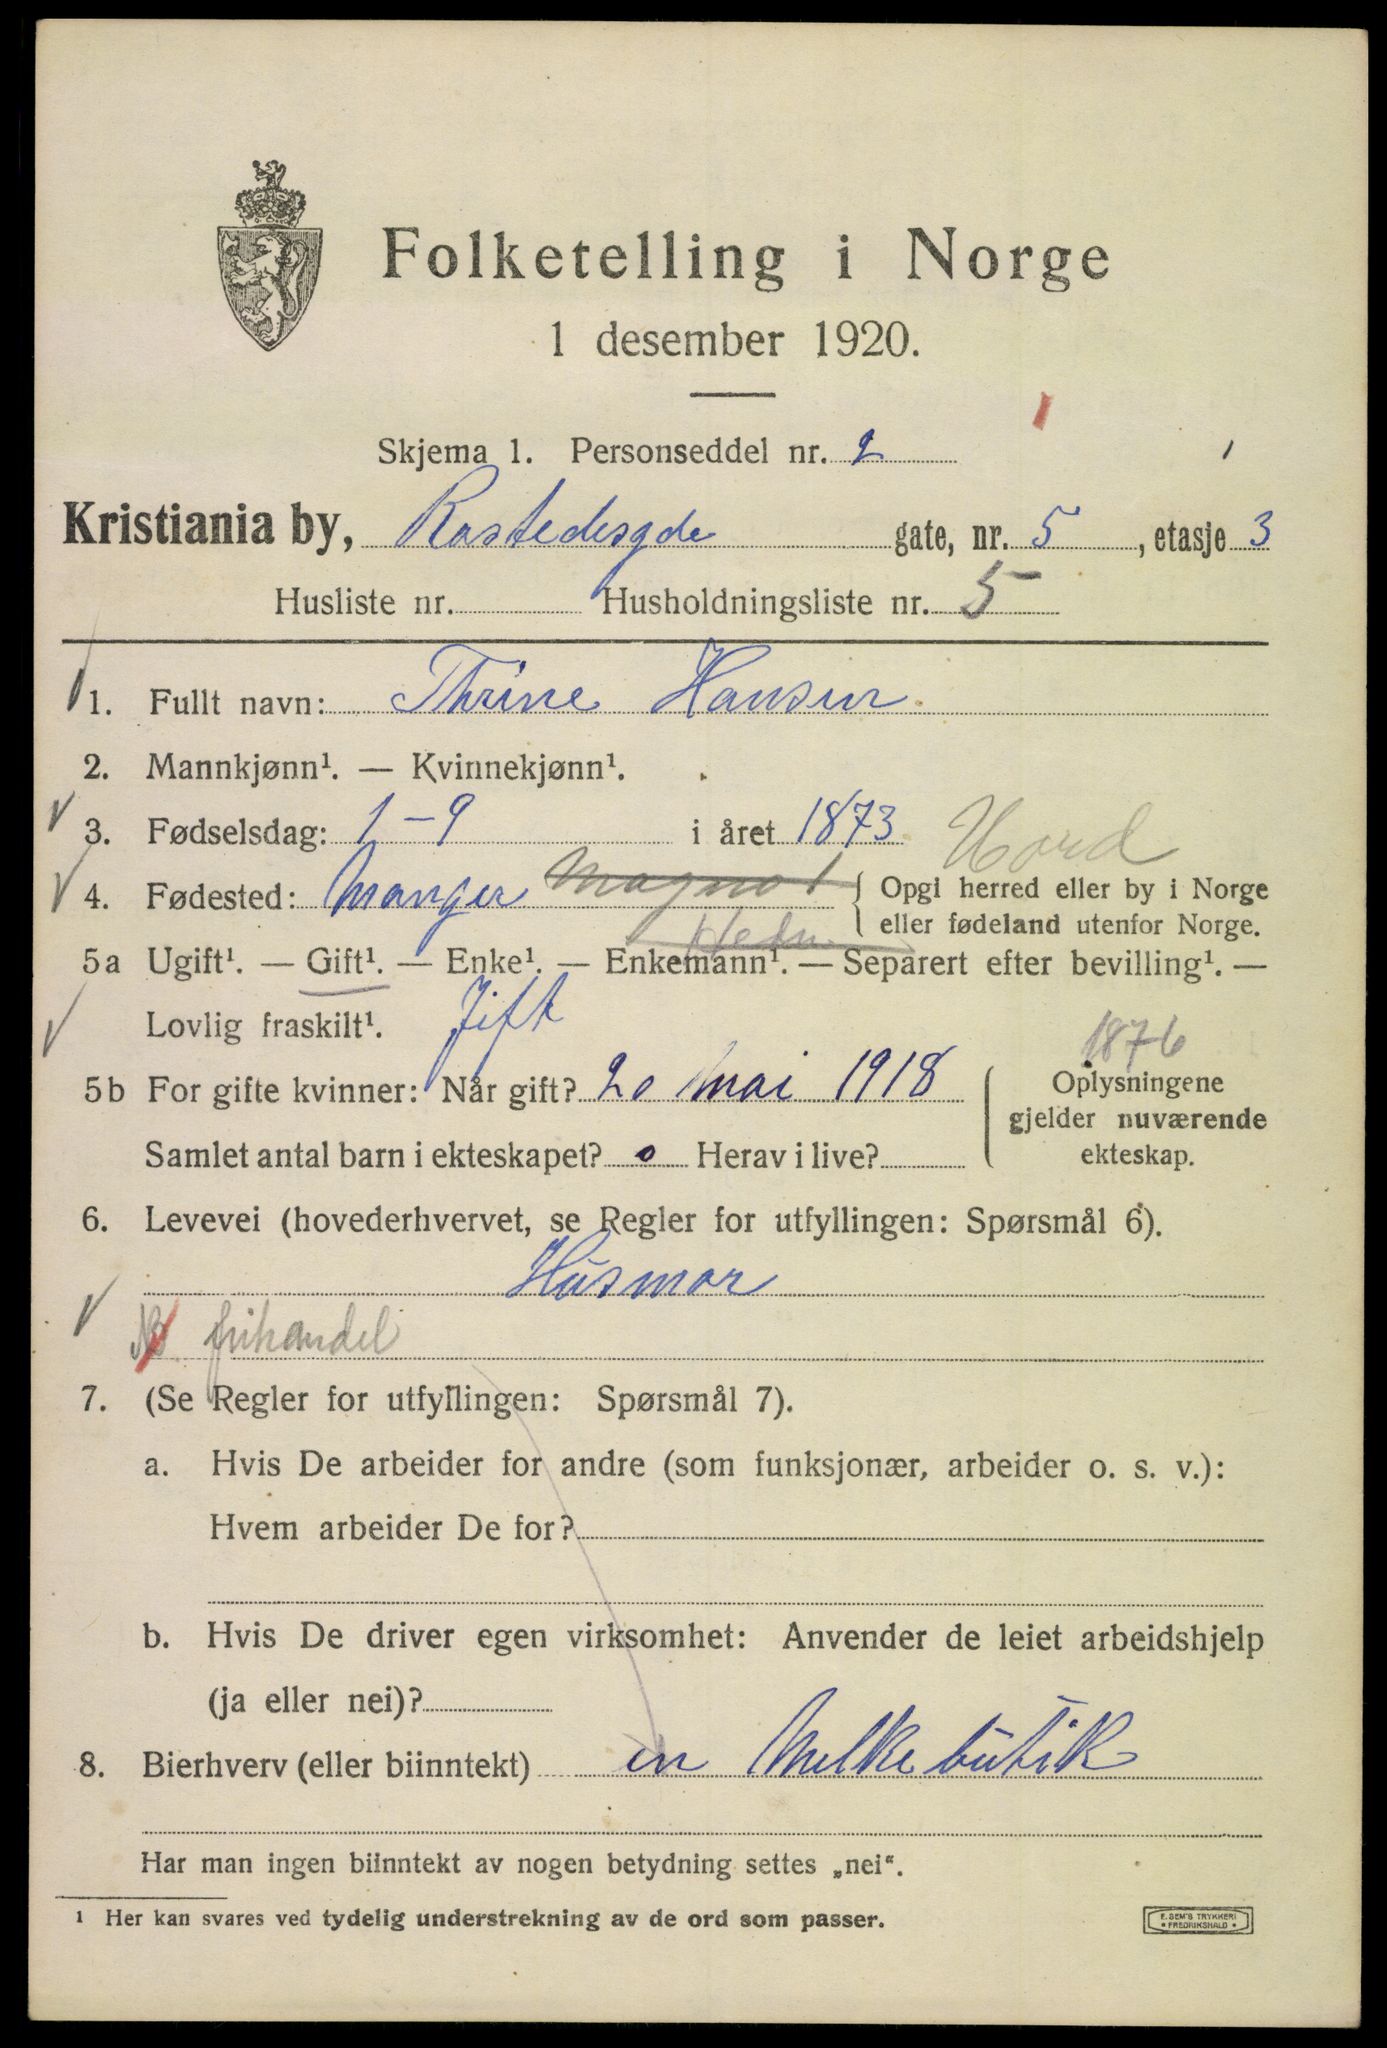 Folketelling i Norge
1 desember 1920.
Skjema 1. Personseddel nr. 2
Kristiania by, Rostedsgde gate, nr. 5, etasje 3
Husliste nr. Husholdningsliste nr. 5
1. Fullt navn: Thrine Hansen
2. Mannkjønn¹. — Kvinnekjønn¹.
3. Fødselsdag: 1-9 i året 1873 Hord
4. Fødested: Manger Opgi herred eller by i Norge
eller fødeland utenfor Norge.
Hedm
5a Ugift¹. — Gift¹. — Enke¹. — Enkemann¹. — Separert efter bevilling¹. —
Lovlig fraskilt¹. Jift
1876
5b For gifte kvinner: Når gift? 20 Mai 1918 Oplysningene
gjelder nuværende
Samlet antal barn i ekteskapet? 0 Herav i live? ekteskap.
6. Levevei (hovederhvervet, se Regler for utfyllingen: Spørsmål 6).
Husmor
frihandel
7. (Se Regler for utfyllingen: Spørsmål 7).
a. Hvis De arbeider for andre (som funksjonær, arbeider o. s. v.):
Hvem arbeider De for?
b. Hvis De driver egen virksomhet: Anvender de leiet arbeidshjelp
(ja eller nei)?
8. Bierhverv (eller biinntekt) en Melkebutik
Har man ingen biinntekt av nogen betydning settes „nei“.
¹ Her kan svares ved tydelig understrekning av de ord som passer.
E. SEM'S TRYKKERI
• FREDRIKSHALD •